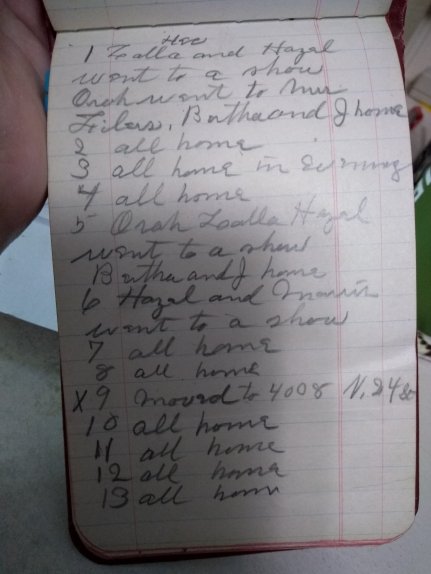 Dec
1 Zalla and Hazal
went to a show
Orah went to Mrs
Filers, Bertha and J home
2 all home
3 all home in Evening
4 all home
5 Orah Zalla Hazal
went to a show
Bertha and J home
6 Hazel and Morris
went to a show
7 all home
8 all home
X 9 moved to 4008 N. 24 St
10 all home
11 all home
12 all home
13 all hom